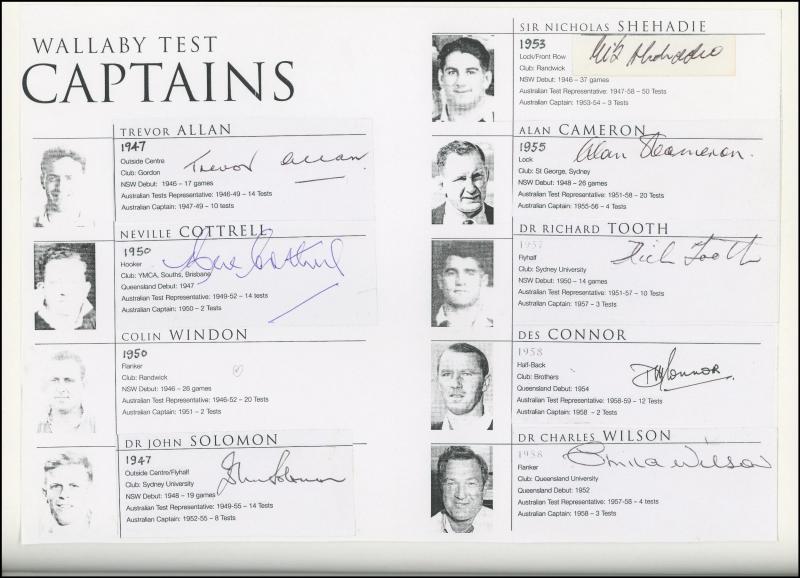 WALLABY TEST
CAPTAINS
TREVOR ALLAN
1947
Outside Centre
Club: Gordon
NSW Debut: 1946 – 17 games
Australian Tests Representative: 1946-49 – 14 Tests
Australian Captain: 1947-49 – 10 tests
Trevor Allan
NEVILLE COTTRELL
1950
Hooker
Club: YMCA, Souths, Brisbane
Queensland Debut: 1947
Australian Test Representative: 1949-52 – 14 tests
Australian Captain: 1950 – 2 Tests
COLIN WINDON
1950
Flanker
Club: Randwick
NSW Debut: 1946 – 26 games
Australian Test Representative: 1946-52 – 20 Tests
Australian Captain: 1951 – 2 Tests
DR JOHN SOLOMON
1947
Outside Centre/Flyhalf
Club: Sydney University
NSW Debut: 1948 – 19 games
Australian Test Representative: 1949-55 – 14 Tests
Australian Captain: 1952-55 – 8 Tests
John Solomon
SIR NICHOLAS SHEHADIE
1953
Lock/Front Row
Club: Randwick
NSW Debut: 1946 – 37 games
Australian Test Representative: 1947-58 – 50 Tests
Australian Captain: 1953-54 – 3 Tests
ALAN CAMERON
1955
Lock
Club: St George, Sydney
NSW Debut: 1948 – 26 games
Australian Test Representative: 1951-58 – 20 Tests
Australian Captain: 1955-56 – 4 Tests
Alan Cameron.
DR RICHARD TOOTH
1957
Flyhalf
Club: Sydney University
NSW Debut: 1950 – 14 games
Australian Test Representative: 1951-57 – 10 Tests
Australian Captain: 1957 – 3 Tests
Dick Tooth
DES CONNOR
1958
Half-Back
Club: Brothers
Queensland Debut: 1954
Australian Test Representative: 1958-59 – 12 Tests
Australian Captain: 1958 – 2 Tests
DR CHARLES WILSON
1958
Flanker
Club: Queensland University
Queensland Debut: 1952
Australian Test Representative: 1957-58 – 4 tests
Australian Captain: 1958 – 3 Tests
Wilson